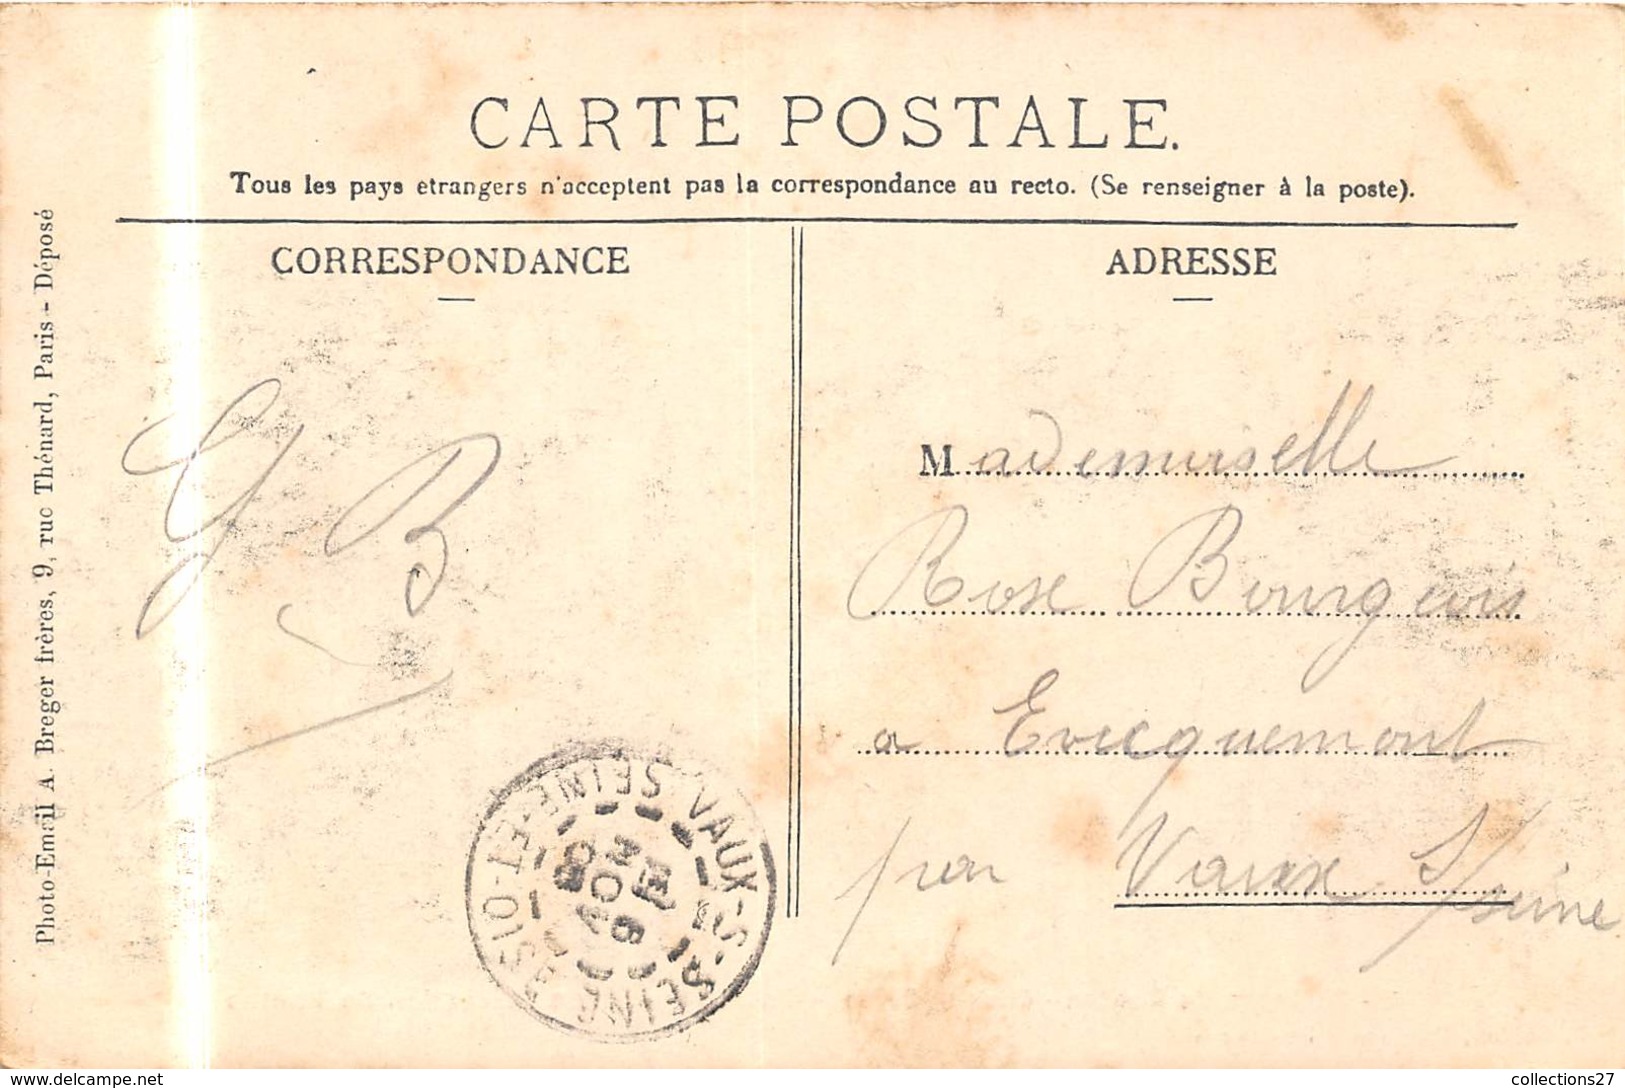 CARTE POSTALE.
Tous les pays etrangers n'acceptent pas la correspondance au recto. (Se renseigner à la poste).
CORRESPONDANCE
ADRESSE
Photo-Email A. Breger frères, 9, rue Thénard, Paris - Déposé
G B
Mademoiselle
Rose Bourgeois
a Evecquemont
par Vaux S/seine
VAUX-S-SEINE
SEINE-ET-OISE
9
NOV
08
collections27